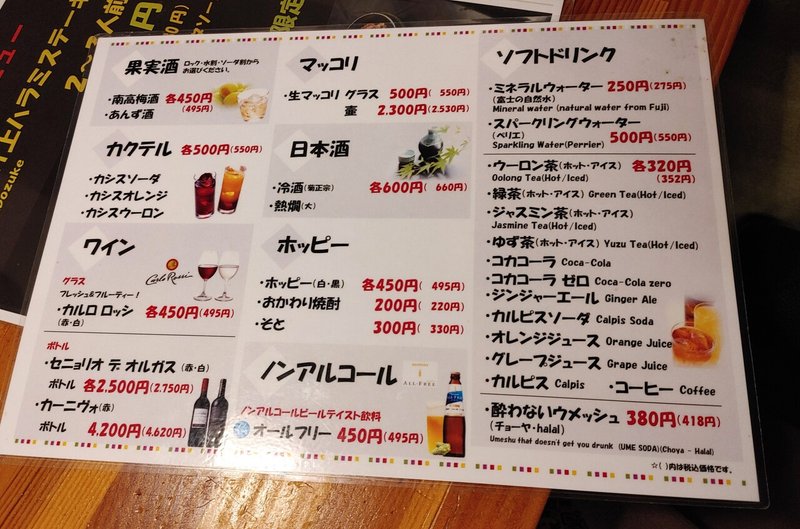 果実酒 ロック・水割・ソーダ割から
お選びください。
・南高梅酒 各450円
・あんず酒 (495円)
カクテル 各500円(550円)
・カシスソーダ
・カシスオレンジ
・カシスウーロン
ワイン
グラス
フレッシュ&フルーティー!
Carlo Rossi
・カルロ ロッシ 各450円(495円)
(赤・白)
ボトル
・セニョリオ デ オルガス (赤・白)
ボトル 各2,500円(2,750円)
・カーニヴォ(赤)
ボトル 4,200円(4,620円)
マッコリ
・生マッコリ グラス 500円( 550円)
壷 2,300円(2,530円)
日本酒
・冷酒(菊正宗) 各600円( 660円)
・熱燗(大)
ホッピー
・ホッピー(白・黒) 各450円( 495円)
・おかわり焼酎 200円( 220円)
・そと 300円( 330円)
ノンアルコール
ALL-FREE
ノンアルコールビールテイスト飲料
オールフリー 450円(495円)
ソフトドリンク
・ミネラルウォーター 250円(275円)
(富士の自然水)
Mineral water (natural water from Fuji)
・スパークリングウォーター
(ペリエ) 500円(550円)
Sparkling Water(Perrier)
・ウーロン茶(ホット・アイス) 各320円
Oolong Tea(Hot/Iced) (352円)
・緑茶(ホット・アイス) Green Tea(Hot/Iced)
・ジャスミン茶(ホット・アイス)
Jasmine Tea(Hot/Iced)
・ゆず茶(ホット・アイス) Yuzu Tea(Hot/Iced)
・コカコーラ Coca-Cola
・コカコーラ ゼロ Coca-Cola zero
・ジンジャーエール Ginger Ale
・カルピスソーダ Calpis Soda
・オレンジジュース Orange Juice
・グレープジュース Grape Juice
・カルピス Calpis ・コーヒー Coffee
・酔わないウメッシュ 380円(418円)
(チョーヤ・halal)
Umeshu that doesn't get you drunk (UME SODA)(Choya - Halal)
☆( )内は税込価格です。
上ハラミステーキ
2〜3人前
限定